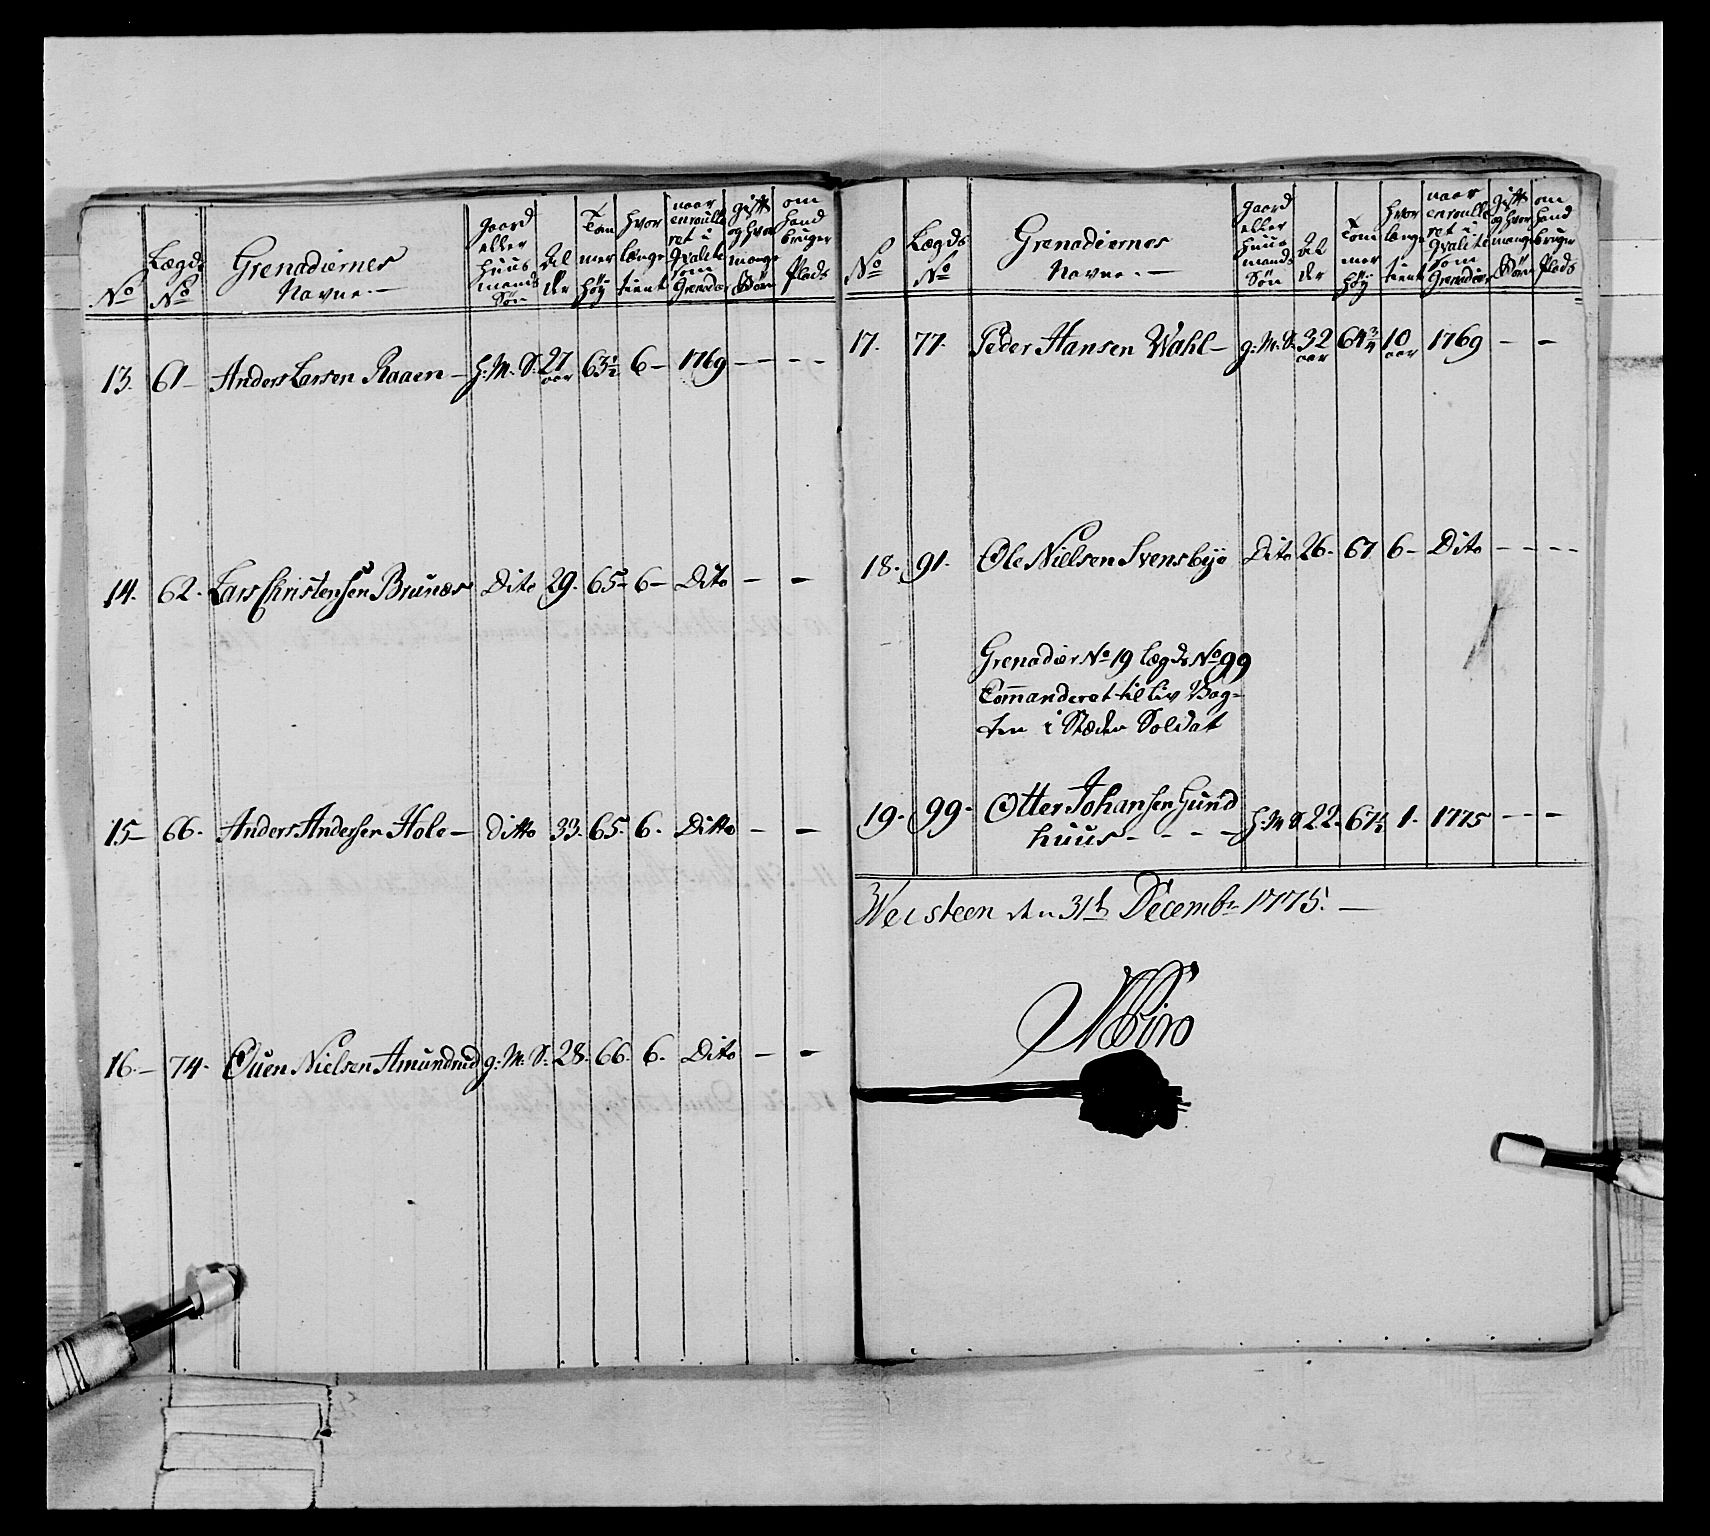 No
Lægds No
Grenadiernes Navne.—
gaard eller Huus mands Søn
Al der
Tom mer Høy
hvor længe tient
naar enroulle ret i Qvalite som Grenadr
gift og hvor mange Børn
om hand bruger Plads
13. 61— Anders Larsen Raaen— H. M. S. 27 aar 63½ 6— 1769 — — — —
14. 62. Lars Christensen Brunæs Dito 29. 65— 6— Dito — —
15— 66. Anders Andersen Hole— ditto 33. 65. 6. Ditto — —
16.— 74. Ouen Nielsen Amundrud g. M. S. 28. 66. 6. Dito — —
No
Lægds No
Grenadiernes Navne.—
gaard eller Huus mands Søn
Al der
Tom mer høy
hvor længe tient
naar enroulle ret i Qvalite som Grenadier
gift og hvor mange Børn
om hand bruger Plads
17. 77. Peder Hansen Wahl— g. M. S. 32 aar 64¾ 10 aar 1769 — —
18. 91. Ole Nielsen Svensbye Dito 26. 67 6— Dito — — — —
Grenadier No 19 lægds No 99
Commanderet til liv Vag-
ten i Stæden Soldat
19. 99. Otter Johansen Hund
huus — — — — H. M. S. 22. 67½ 1. 1775 — — —
Weisteen den 31te Decembr 1775. —